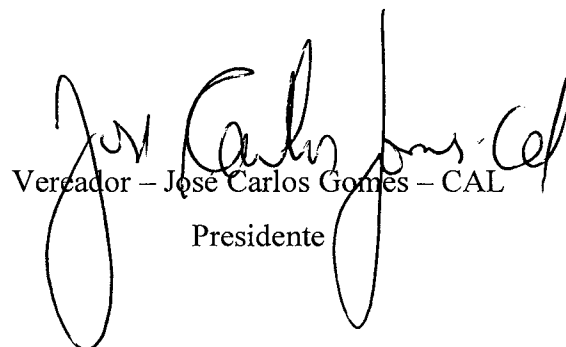 José Carlos Gomes - Cal
Vereador – José Carlos Gomes – CAL
Presidente